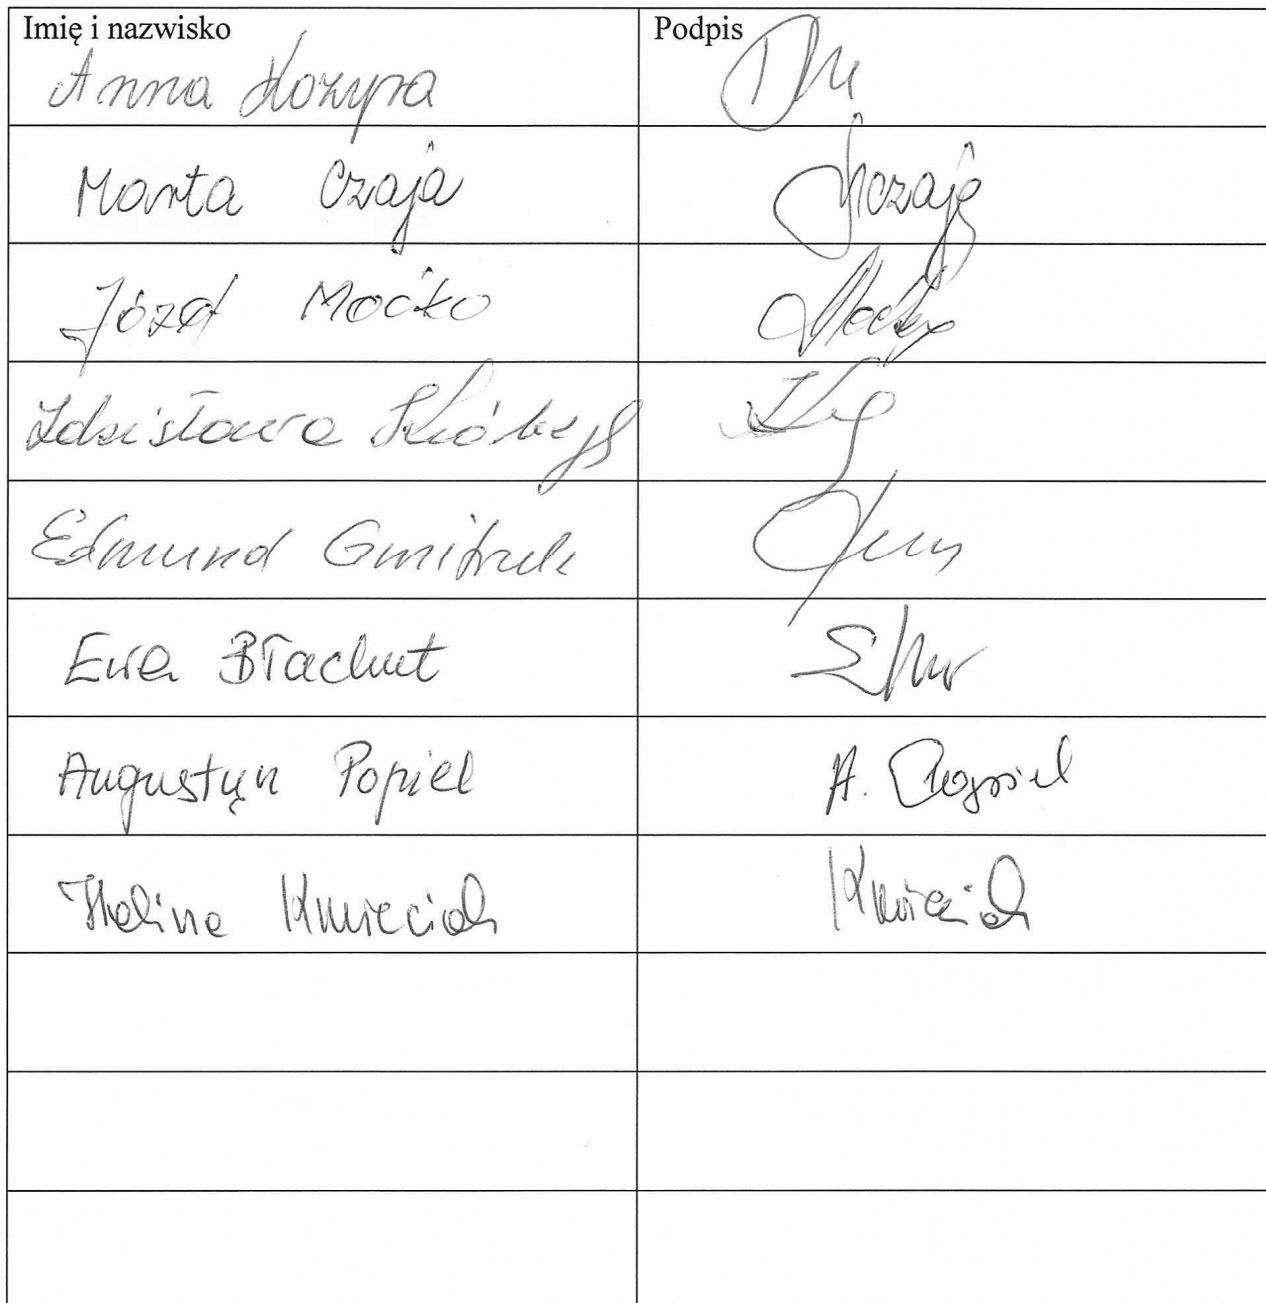 Imię i nazwisko Podpis
Anna
Marta Czaja MCzaja
Józef Moćko Moćko
Zdzisława
Edmund Gmitruk
Ewa Błachut
Augustyn Popiel A. Popiel
Halina Kmieciak Kmieciak